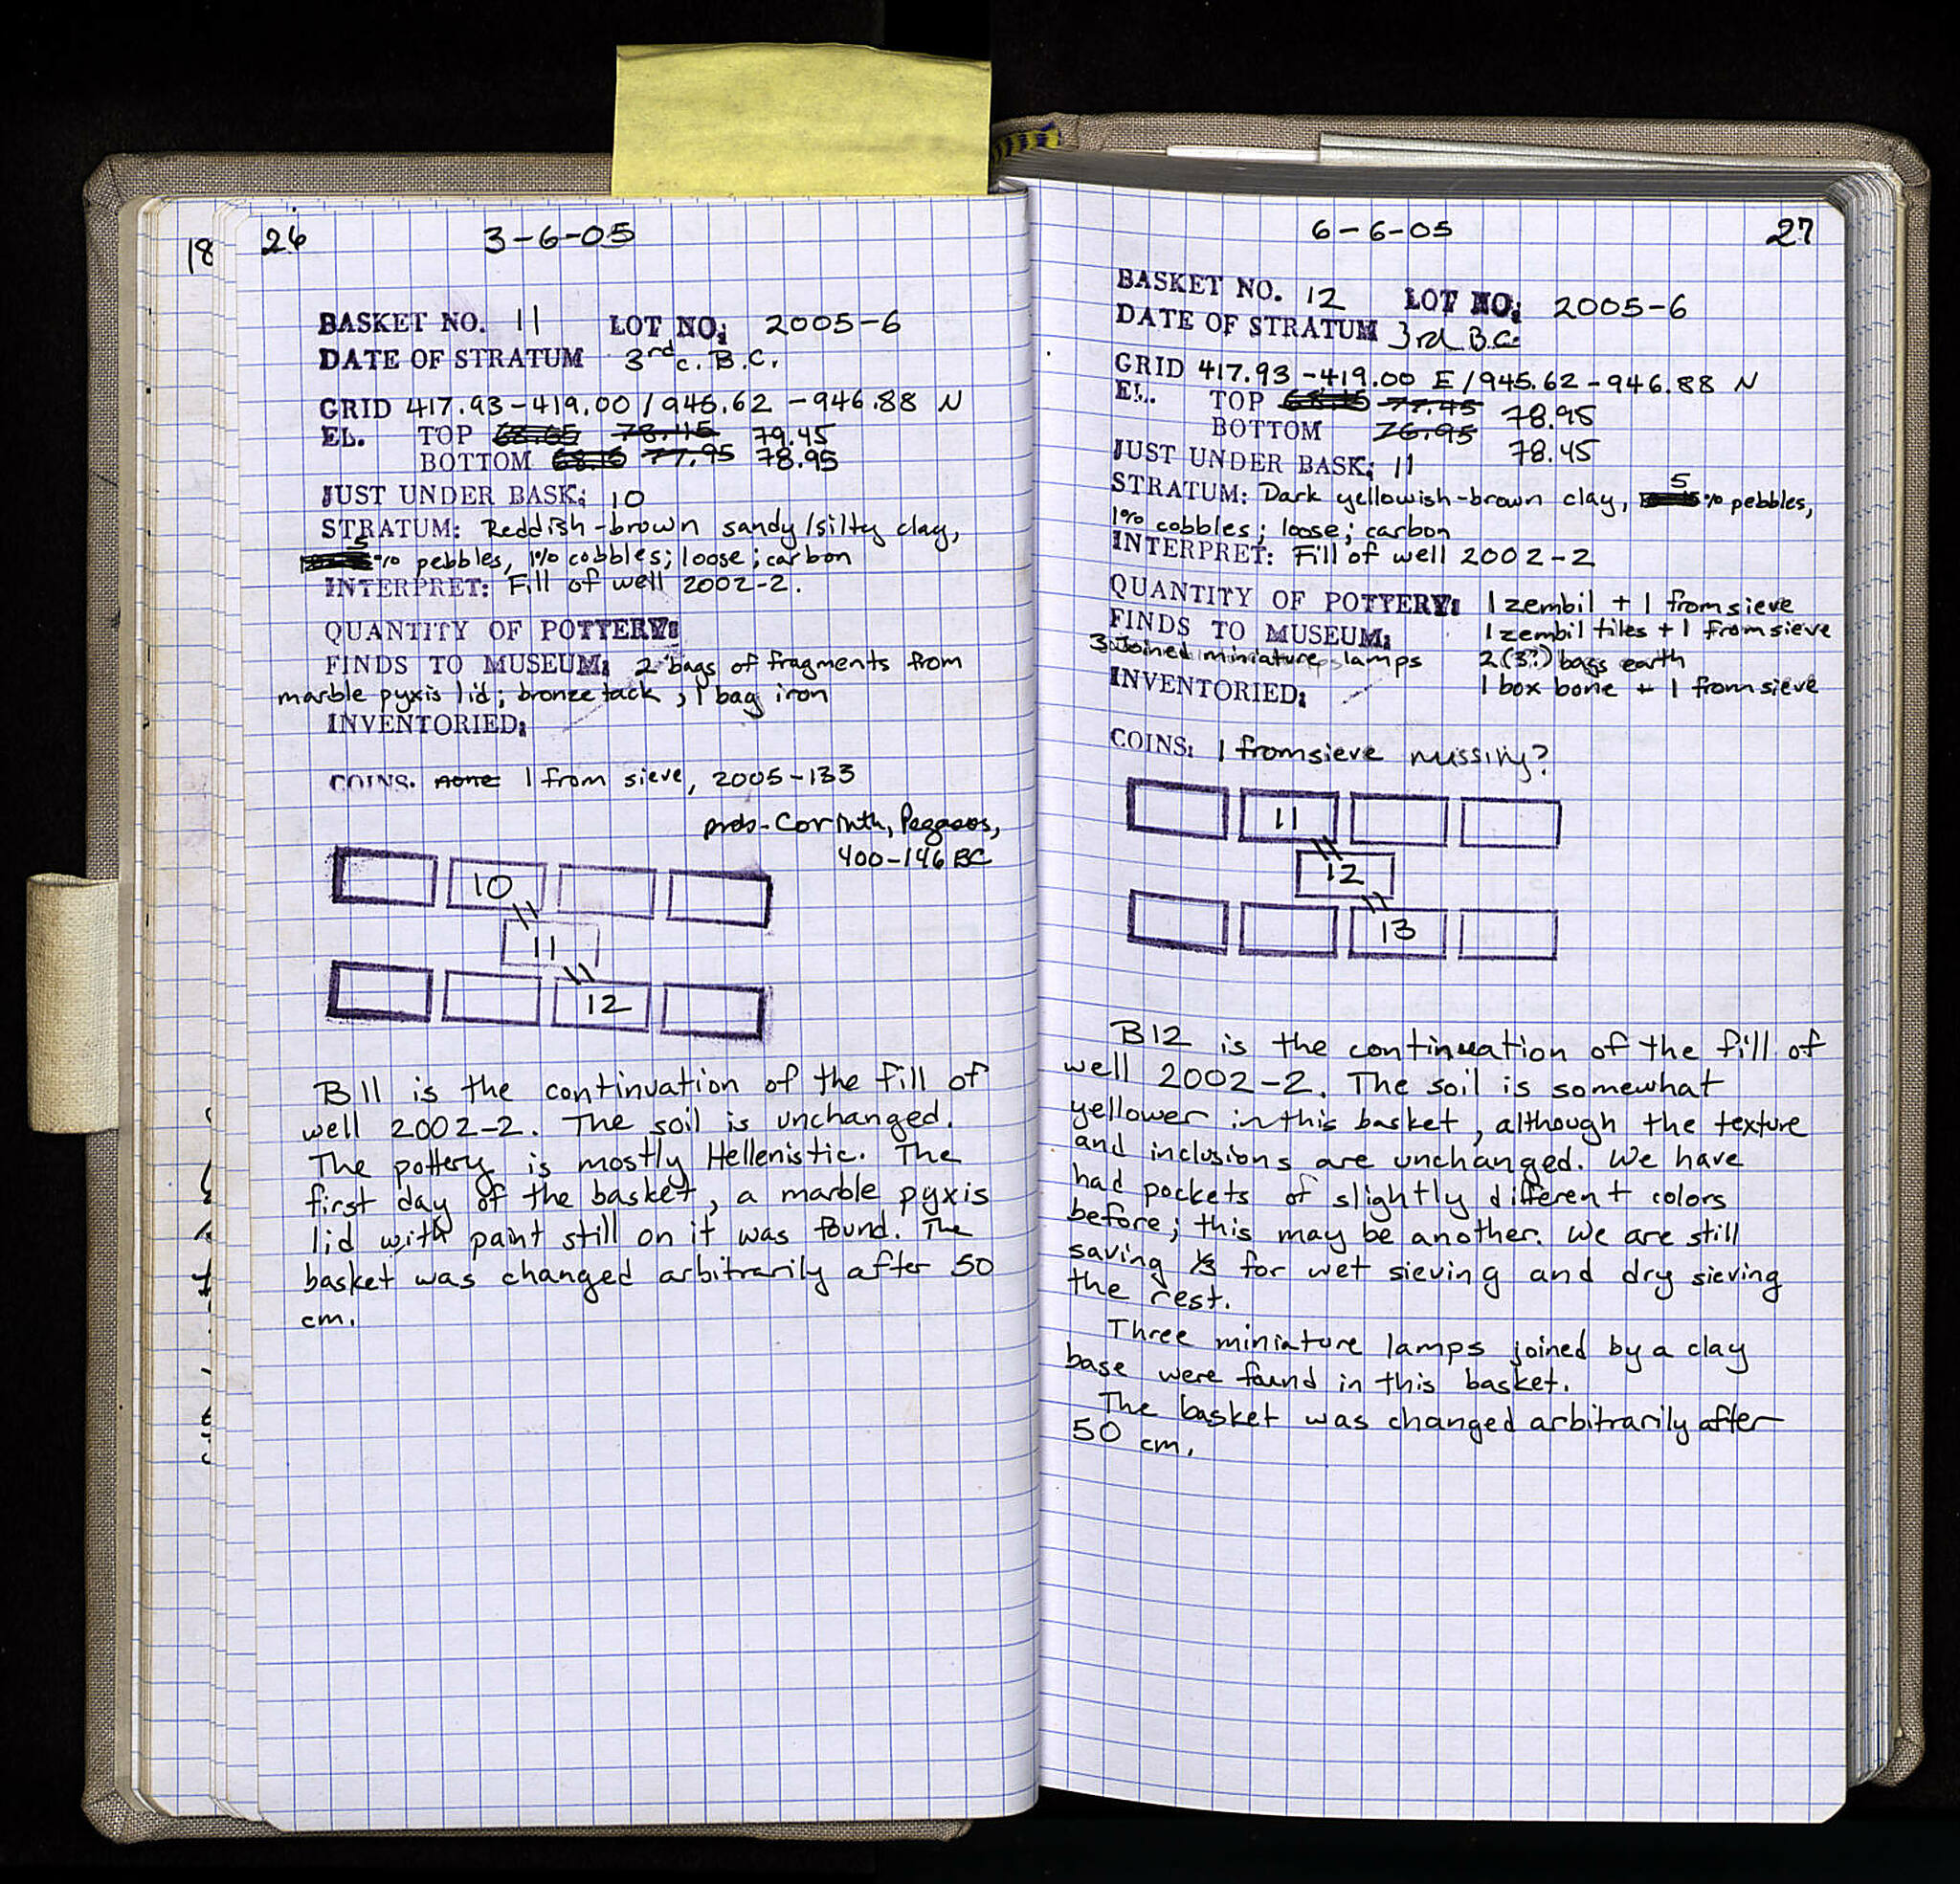 18
26 3-6-05
BASKET NO. 11 LOT NO: 2005-6
DATE OF STRATUM 3rd c. B.C.
GRID 417.93-419.00 / 945.62 - 946.88 N
EL. TOP 68.65 78.45 79.45
BOTTOM 68.15 77.95 78.95
JUST UNDER BASK: 10
STRATUM: Reddish-brown sandy/silty clay,
5% pebbles, 1% cobbles; loose; carbon
INTERPRET: Fill of well 2002-2.
QUANTITY OF POTTERY:
FINDS TO MUSEUM: 2 bags of fragments from
marble pyxis lid; bronze tack, 1 bag iron
INVENTORIED:
COINS. none 1 from sieve, 2005-133
prob. Corinth, Pegasos,
400-146 BC
10
11
12
B11 is the continuation of the fill of
well 2002-2. The soil is unchanged.
The pottery is mostly Hellenistic. The
first day of the basket, a marble pyxis
lid with paint still on it was found. The
basket was changed arbitrarily after 50
cm.
6-6-05 27
BASKET NO. 12 LOT NO: 2005-6
DATE OF STRATUM 3rd B.C.
GRID 417.93-419.00 E/945.62-946.88 N
EL. TOP 77.45 78.95
BOTTOM 76.95 78.45
JUST UNDER BASK: 11
STRATUM: Dark yellowish-brown clay, 5% pebbles,
1% cobbles; loose; carbon
INTERPRET: Fill of well 2002-2
QUANTITY OF POTTERY: 1 zembil + 1 from sieve
FINDS TO MUSEUM: 1 zembil tiles + 1 from sieve
3 Joined miniature lamps 2(3?) bags earth
INVENTORIED: 1 box bone + 1 from sieve
COINS: 1 from sieve missing?
11
12
13
B12 is the continuation of the fill of
well 2002-2. The soil is somewhat
yellower in this basket, although the texture
and inclusions are unchanged. We have
had pockets of slightly different colors
before; this may be another. We are still
saving 1/3 for wet sieving and dry sieving
the rest.
Three miniature lamps joined by a clay
base were found in this basket.
The basket was changed arbitrarily after
50 cm.